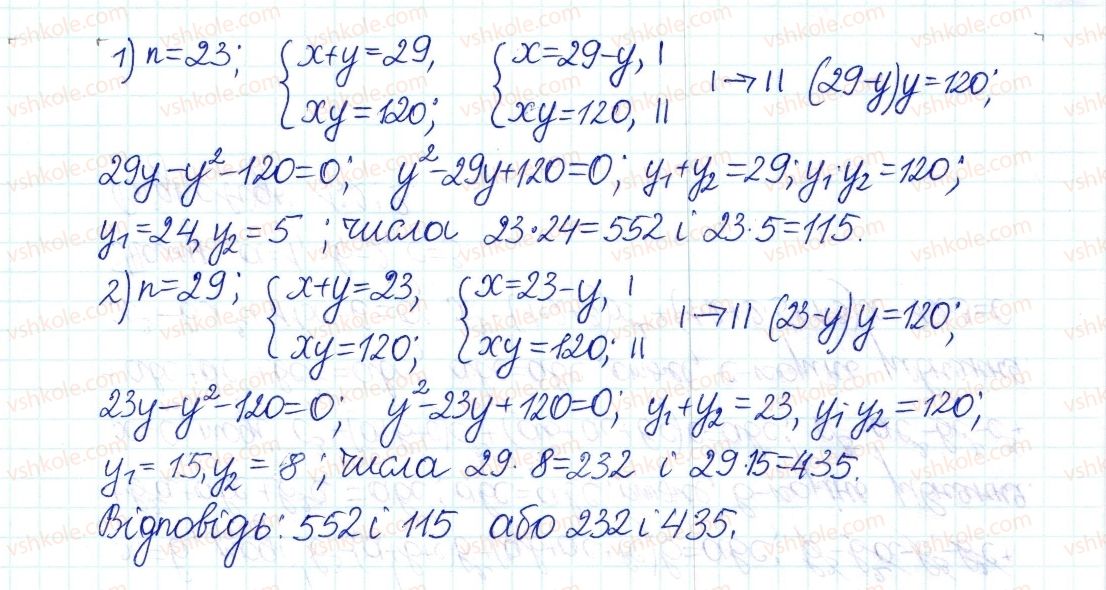 1) n=23; { x+y=29, xy=120; { x=29-y, | xy=120, || | → || (29-y)y=120;
29y-y²-120=0; y²-29y+120=0; y₁+y₂=29; y₁·y₂=120;
y₁=24, y₂=5; числа 23·24=552 і 23·5=115.
2) n=29; { x+y=23, xy=120; { x=23-y, | xy=120; || | → || (23-y)y=120;
23y-y²-120=0; y²-23y+120=0; y₁+y₂=23, y₁·y₂=120;
y₁=15, y₂=8; числа 29·8=232 і 29·15=435.
Відповідь: 552 і 115 або 232 і 435.